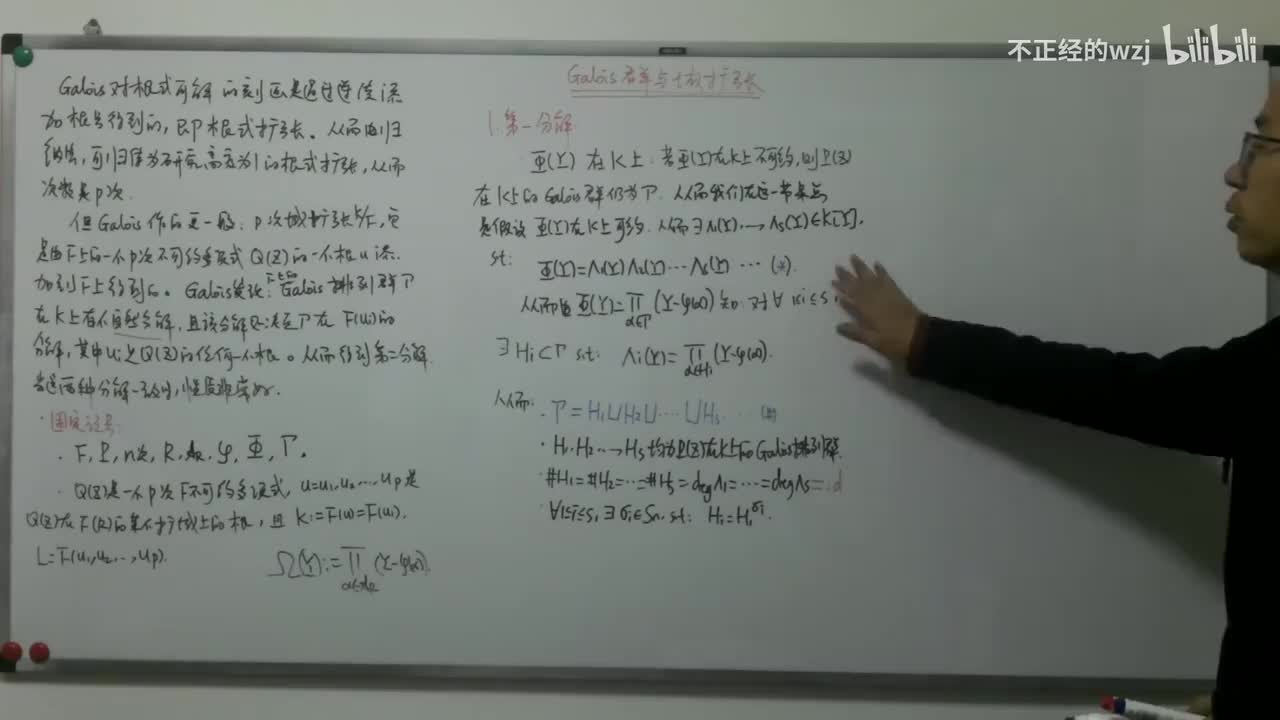 不正经的wzj bilibili
Galois群与p次扩张
Galois对根式可解的刻画是通过逐次添
加根号得到的，即根式扩张。从而由归
纳法，可归结为研究高度为1的根式扩张，从而
次数是p次.
但Galois作的更一般：p次域扩张K/F，它
是由F上的一个p次不可约多项式Q(Z)的一个根u添
加到F上得到的。Galois群Γ
在K上有个自然分解，且该分解决定Γ在F(ui)的
分解，其中ui是Q(Z)的任何一个根。从而得到第二分解.
当这两种分解一致时，性质非常好.
·固定记号:
· F, P, n次, R, φ, Φ, Γ.
· Q(Z)是一个p次F不可约多项式，u=u1,u2,…,up是
Q(Z)在F(R)的某个扩域上的根，且 K:=F(u)=F(u1).
L=F(u1,u2,…,up). Ω(Y):=∏(Y-φ(α)).
1.第一分解.
Φ(Y)在K上：若Φ(Y)在K上不可约，则P(Z)
在K上的Galois群仍为Γ. 从而我们在这一节里
是假设Φ(Y)在K上可约. 从而∃Λ1(Y),…,Λs(Y)∈K[Y],
st: Φ(Y)=Λ1(Y)Λ2(Y)…Λs(Y) … (*).
从而由Φ(Y)=∏α∈Γ(Y-φ(α))知, 对∀ 1≤i≤s,
∃Hi⊂Γ s.t: Λi(Y)=∏α∈Hi(Y-φ(α)).
从而: · Γ=H1⊔H2⊔…⊔Hs. …
· H1,H2,…,Hs均为P(Z)在K上的Galois排列群.
· #H1=#H2=…=#Hs=degΛ1=…=degΛs=:d
· ∀1≤i≤s,∃σi∈Sn, st: Hi=H1^σi.